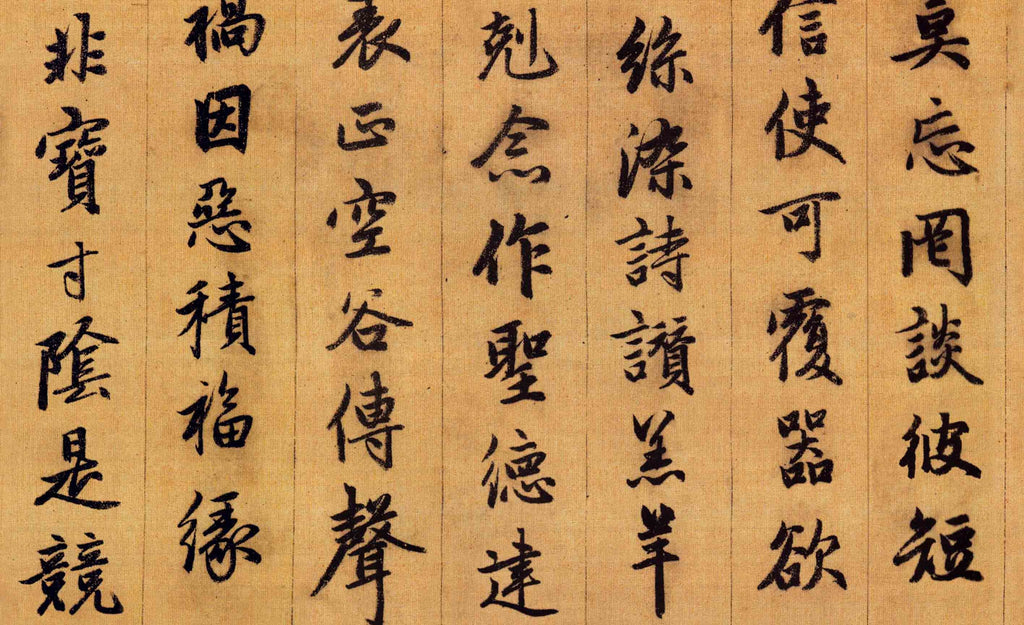 莫忘罔談彼短
信使可覆器欲
絲染詩讚羔羊
剋念作聖德建
表正空谷傳聲
禍因惡積福緣
非寶寸陰是競